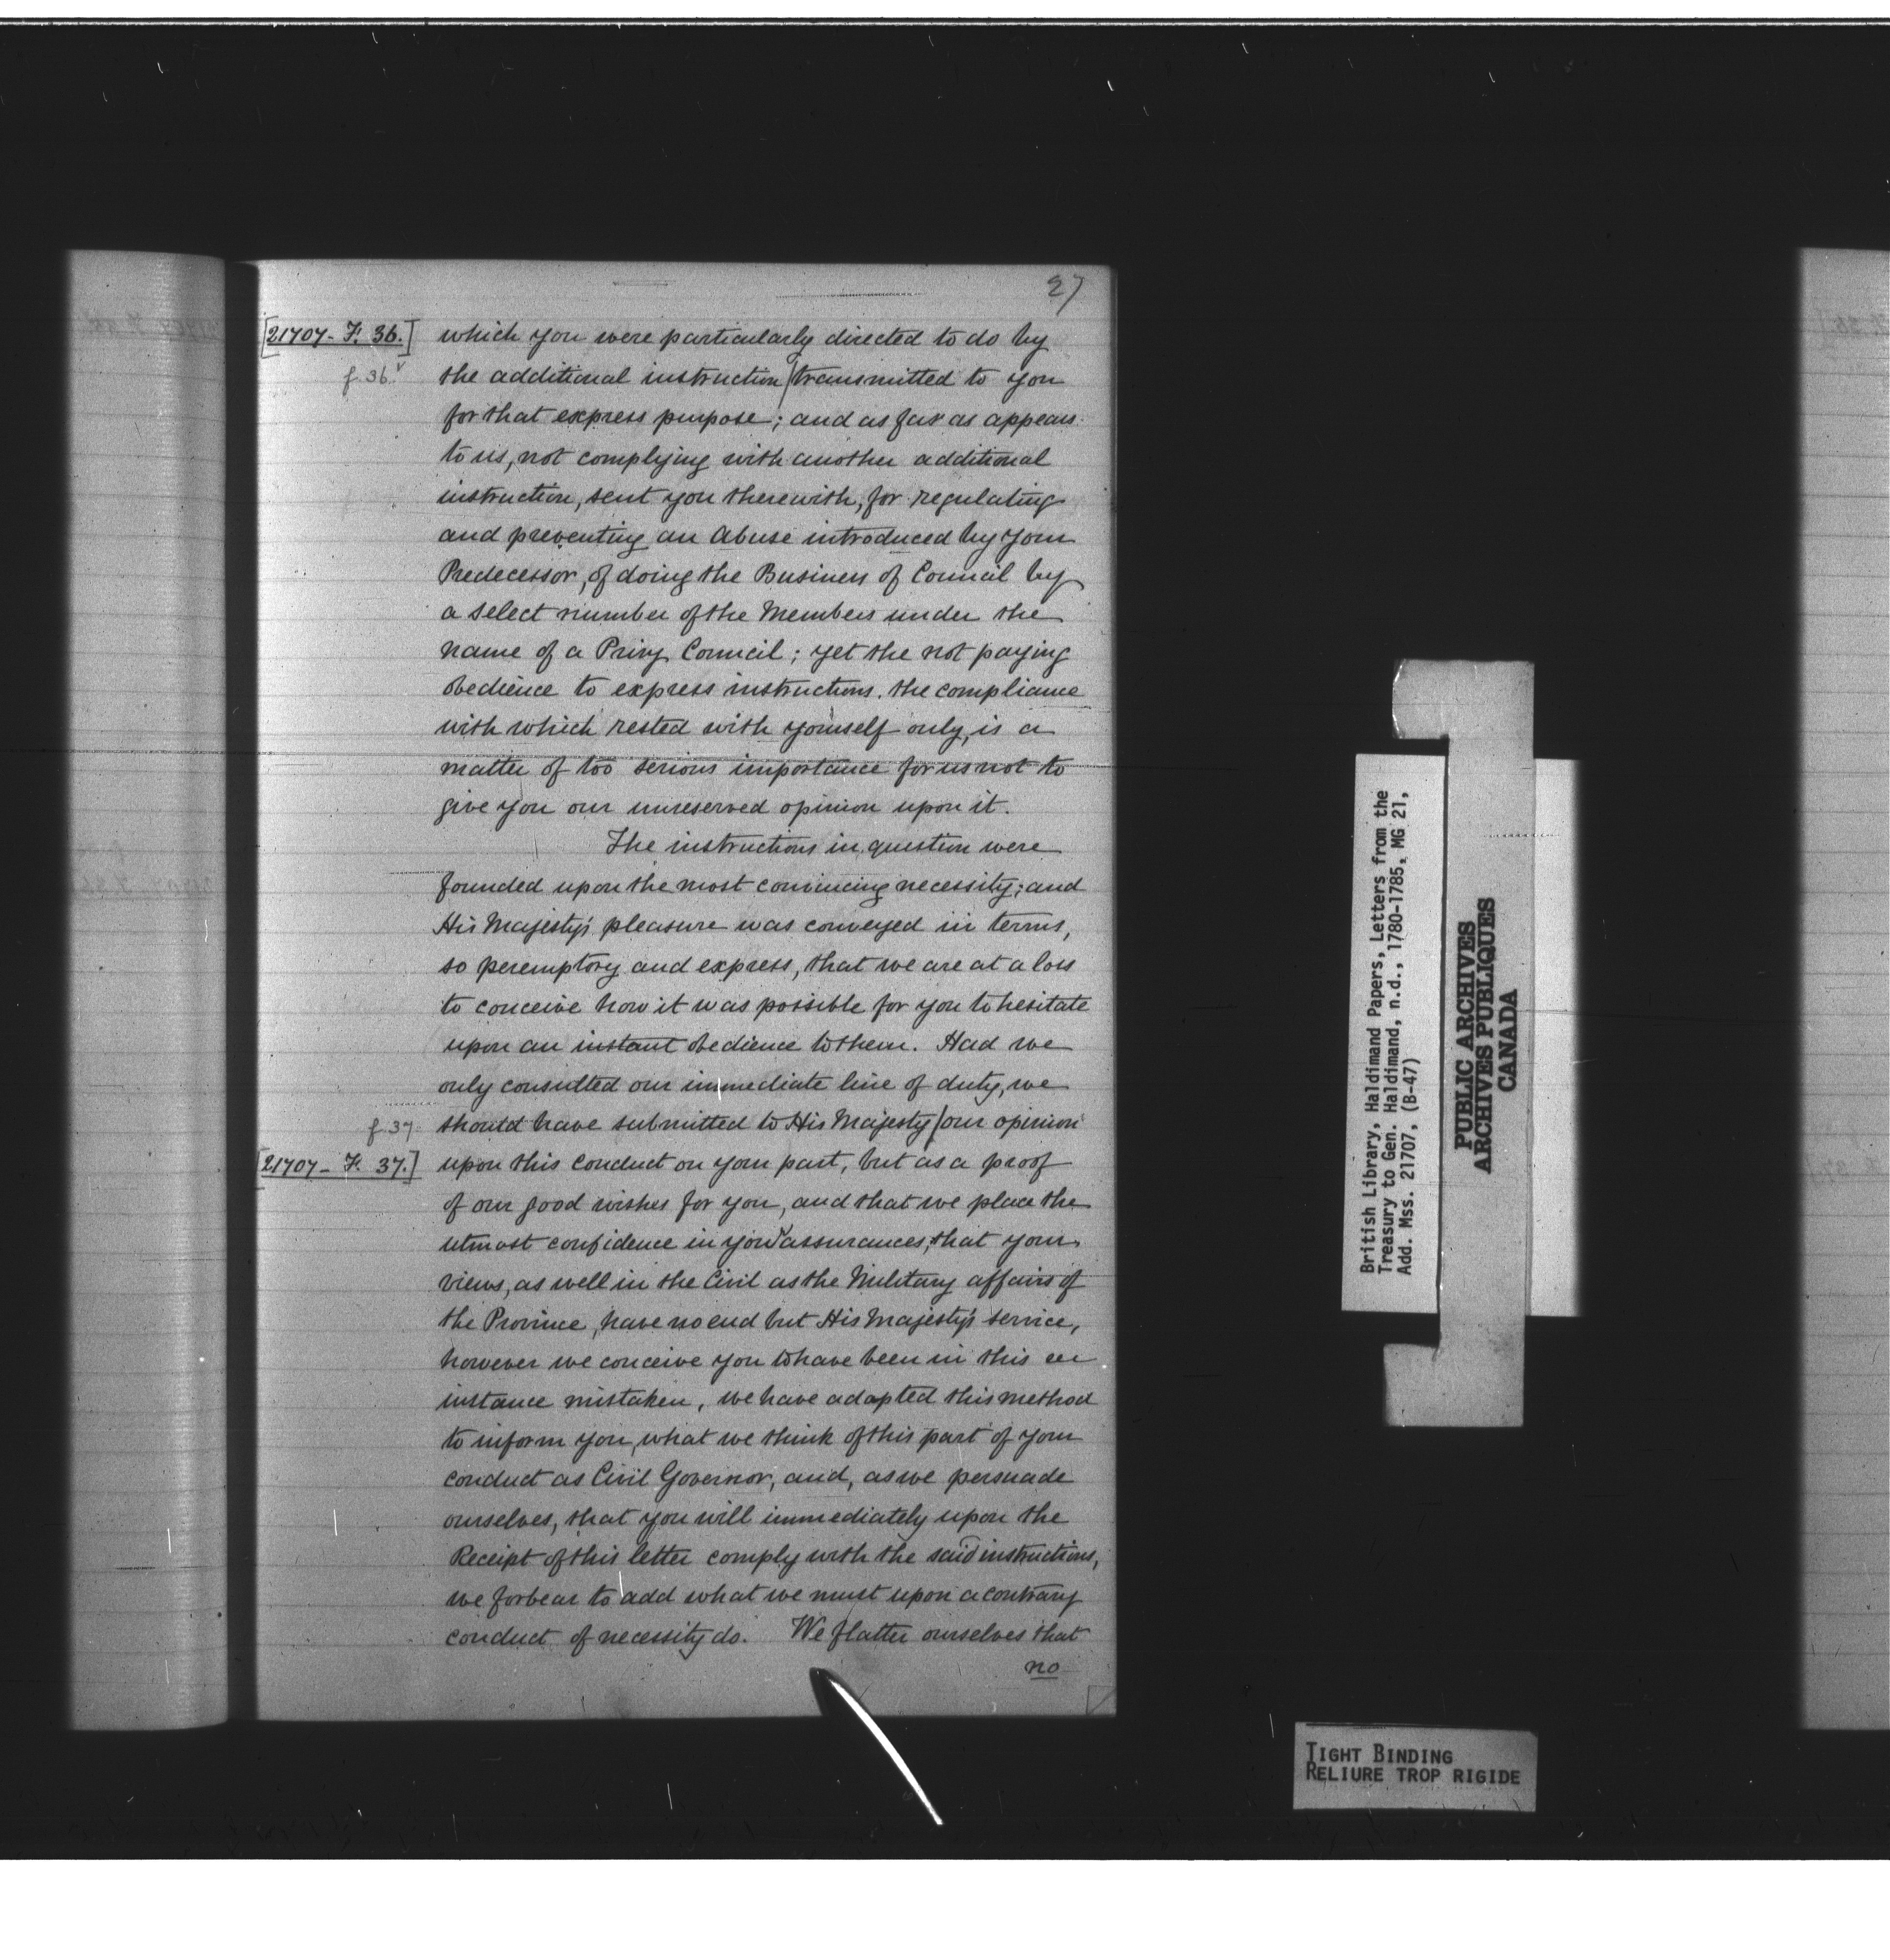 27
[21707 - F. 36.] which you were particularly directed to do by
f. 36v the additional instruction / transmitted to you
for that express purpose; and as far as appears
to us, not complying with another additional
instruction, sent you therewith, for regulating
and preventing an Abuse introduced by your
Predecessor, of doing the Business of Council by
a select number of the Members under the
name of a Privy Council; yet the not paying
obedience to express instructions. the compliance
with which rested with yourself only, is a
matter of too serious importance for us not to
give you our unreserved opinion upon it.
The instructions in question were
founded upon the most convincing necessity; and
His Majesty's pleasure was conveyed in terms,
so peremptory and express, that we are at a loss
to conceive how it was possible for you to hesitate
upon an instant obedience to them. Had we
only consulted our immediate line of duty, we
f. 37 should have submitted to His Majesty / our opinion
[21707 - F. 37.] upon this conduct on your part, but as a proof
of our good wishes for you, and that we place the
utmost confidence in your assurances, that your
views, as well in the Civil as the Military affairs of
the Province, have no end but His Majesty's service,
however we conceive you to have been in this
instance mistaken, we have adapted this method
to inform you, what we think of this part of your
conduct as Civil Governor, and, as we persuade
ourselves, that you will immediately upon the
Receipt of this letter comply with the said instructions,
we forbear to add what we must upon a contrary
conduct of necessity do. We flatter ourselves that
no
British Library, Haldimand Papers, Letters from the
Treasury to Gen. Haldimand, n.d., 1780-1785, MG 21,
Add. Mss. 21707, (B-47)
PUBLIC ARCHIVES
ARCHIVES PUBLIQUES
CANADA
TIGHT BINDING
RELIURE TROP RIGIDE